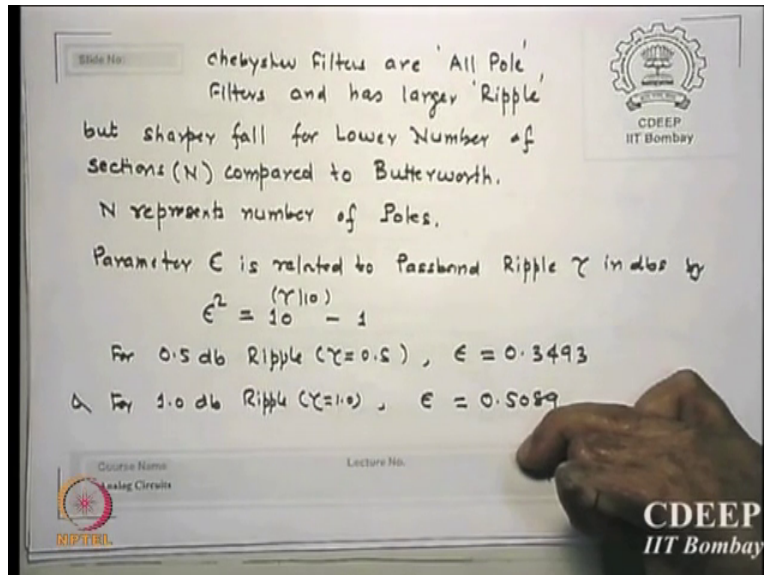 Slide No:
Chebyshev Filters are 'All Pole'
Filters and has larger 'Ripple'
but sharper fall for Lower Number of
sections (N) compared to Butterworth.
N represents number of Poles.
Parameter ε is related to Passband Ripple γ in dbs by
ε² = 10^(γ/10) - 1
For 0.5 db Ripple (γ=0.5), ε = 0.3493
& For 1.0 db Ripple (γ=1.0), ε = 0.5089
Course Name
Analog Circuits
Lecture No.
NPTEL
CDEEP
IIT Bombay
CDEEP
IIT Bombay